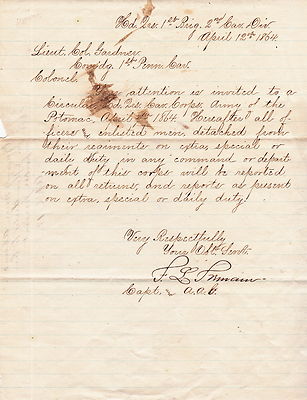 Hd. Qrs. 1st Brig. 2nd Cav. Div
April 12th 1864.
Lieut. Col. Gardner
Comdg 1st Penn. Cav.
Colonel.
Your attention is invited to a
Circular Hd. Qrs. Cav. Corps, Army of the
Potomac, April 1864. "Hereafter all of-
ficers & enlisted men, detached from
their regiments on extra, special or
daily duty in any command or depart-
ment of this corps will be reported
on all returns, and reports as present
on extra, special or daily duty."
Very Respectfully
Your Obt. Servt.
Capt. & A.A.G.